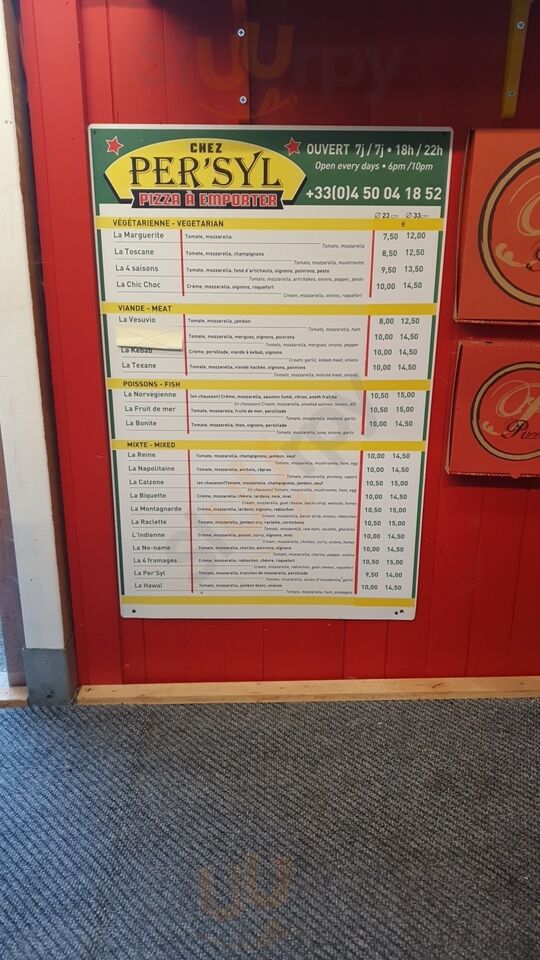 CHEZ
PER'SYL
PIZZA À EMPORTER
OUVERT 7j / 7j • 18h / 22h
Open every days • 6pm /10pm
+33(0)4 50 04 18 52
Ø 23 cm Ø 33 cm
€
VÉGÉTARIENNE - VEGETARIAN
La Marguerite Tomate, mozzarella 7,50 12,00
Tomato, mozzarella
La Toscane Tomate, mozzarella, champignons 8,50 12,50
Tomato, mozzarella, mushrooms
La 4 saisons Tomate, mozzarella, fond d'artichauts, oignons, poivrons, pesto 9,50 13,50
Tomato, mozzarella, artichokes, onions, pepper, pesto
La Chic Choc Crème, mozzarella, oignons, roquefort 10,00 14,50
Cream, mozzarella, onions, roquefort
VIANDE - MEAT
La Vesuvio Tomate, mozzarella, jambon 8,00 12,50
Tomato, mozzarella, ham
Tomate, mozzarella, merguez, oignons, poivrons 10,00 14,50
Tomato, mozzarella, merguez, onions, pepper
La Kebab Crème, persillade, viande à kebab, oignons 10,00 14,50
Cream, garlic, kebab meat, onions
La Texane Tomate, mozzarella, viande hachée, oignons, poivrons 10,00 14,50
Tomato, mozzarella, minced meat, onions,
POISSONS - FISH
La Norvégienne (en chausson) Crème, mozzarella, saumon fumé, citron, aneth fraîche 10,50 15,00
(in chausson) Cream, mozzarella, smoked salmon, lemon, dill
La Fruit de mer Tomate, mozzarella, fruits de mer, persillade 10,50 15,00
Tomato, mozzarella, seafood, garlic
La Bonite Tomate, mozzarella, thon, oignons, persillade 10,00 14,50
Tomato, mozzarella, tuna, onions, garlic
MIXTE - MIXED
La Reine Tomate, mozzarella, champignons, jambon, oeuf 10,00 14,50
Tomato, mozzarella, mushrooms, ham, egg
La Napolitaine Tomate, mozzarella, anchois, câpres 10,00 14,50
Tomato, mozzarella, anchovy, capers
La Calzone (en chausson)Tomate, mozzarella, champignons, jambon, oeuf 10,50 15,00
(in chausson) Tomato, mozzarella, mushrooms, ham, egg
La Biquette Crème, mozzarella, chèvre, lardons, noix, miel 10,00 14,50
Cream, mozzarella, goat cheese, bacon strip, walnuts, honey
La Montagnarde Crème, mozzarella, lardons, oignons, reblochon 10,50 15,00
Cream, mozzarella, bacon strip, onions, reblochon
La Raclette Tomate, mozzarella, jambon cru, raclette, cornichons 10,50 15,00
Tomato, mozzarella, raw ham, raclette, gherkins
L'Indienne Crème, mozzarella, poulet, curry, oignons, miel 10,00 14,50
Cream, mozzarella, chicken, curry, onions, honey
La No-name Tomate, mozzarella, chorizo, poivrons, oignons 10,00 14,50
Tomato, mozzarella, chorizo, pepper, onions
La 4 fromages Crème, mozzarella, reblochon, chèvre, roquefort 10,50 15,00
Cream, mozzarella, reblochon, goat cheese, roquefort
La Per'Syl Tomate, mozzarella, tranches de mozzarella, persillade 9,50 14,00
Tomato, mozzarella, slices of mozzarella, garlic
La Hawaï Tomate, mozzarella, jambon blanc, ananas 10,00 14,50
Tomato, mozzarella, ham, pineapple